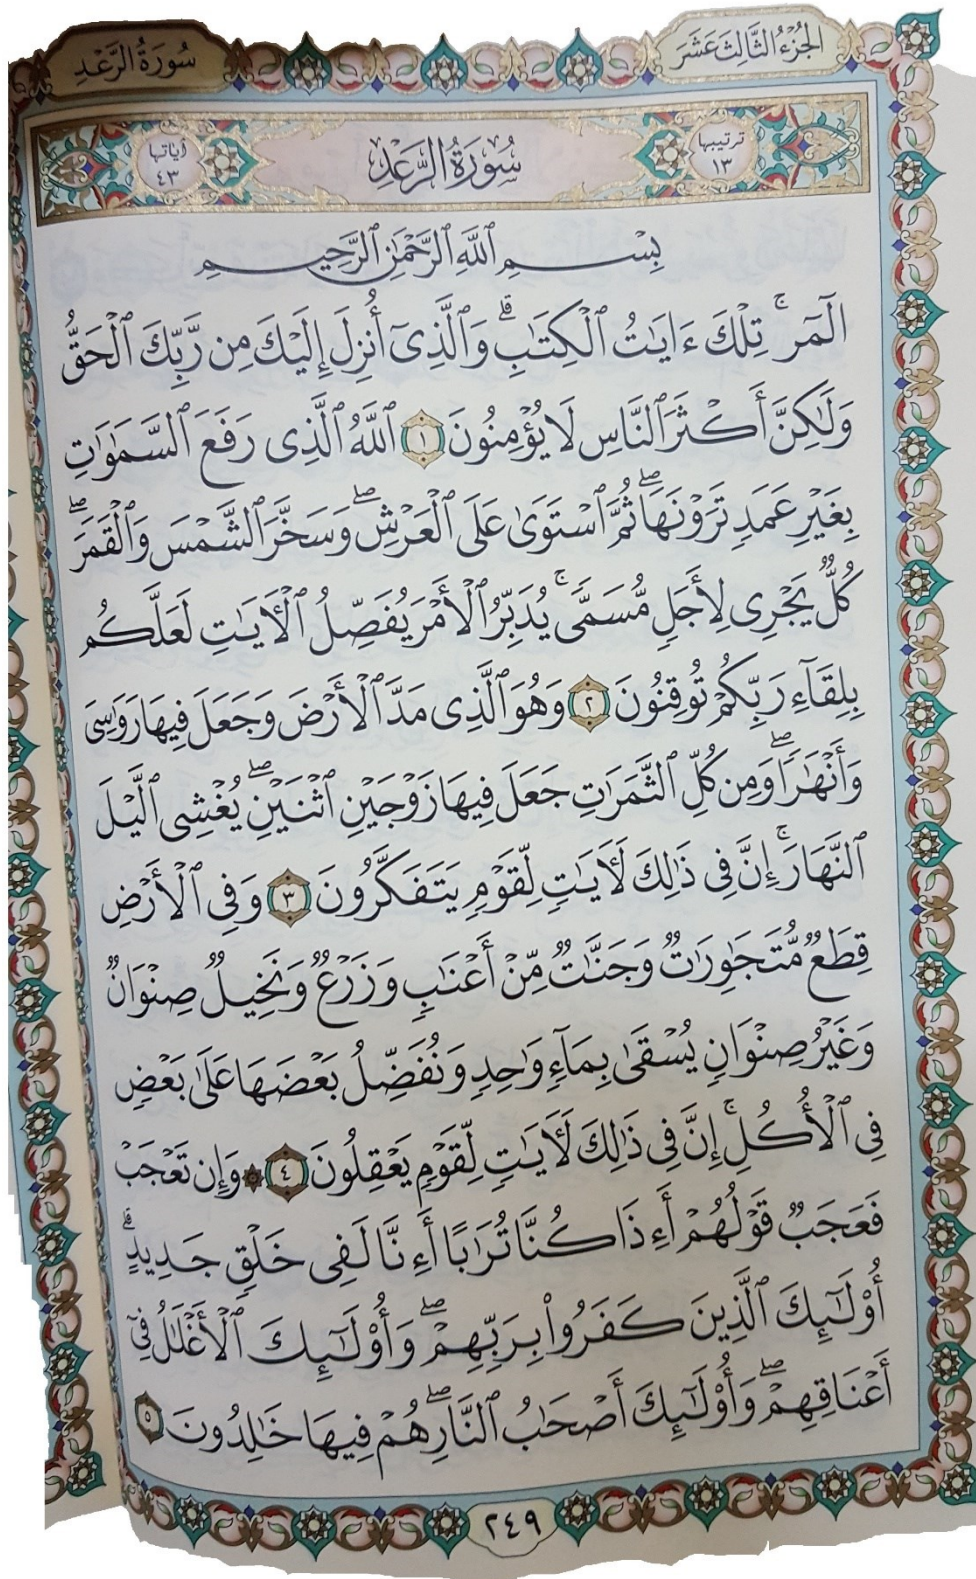 الجزء الثالث عشر
سورة الرعد
ترتيبها ١٣
سورة الرعد
آياتها ٤٣
بِسْمِ ٱللَّهِ ٱلرَّحْمَٰنِ ٱلرَّحِيمِ
الٓمٓر ۚ تِلْكَ ءَايَٰتُ ٱلْكِتَٰبِ ۗ وَٱلَّذِىٓ أُنزِلَ إِلَيْكَ مِن رَّبِّكَ ٱلْحَقُّ
وَلَٰكِنَّ أَكْثَرَ ٱلنَّاسِ لَا يُؤْمِنُونَ ١ ٱللَّهُ ٱلَّذِى رَفَعَ ٱلسَّمَٰوَٰتِ
بِغَيْرِ عَمَدٍ تَرَوْنَهَا ۖ ثُمَّ ٱسْتَوَىٰ عَلَى ٱلْعَرْشِ ۖ وَسَخَّرَ ٱلشَّمْسَ وَٱلْقَمَرَ ۖ
كُلٌّ يَجْرِى لِأَجَلٍ مُّسَمًّى ۚ يُدَبِّرُ ٱلْأَمْرَ يُفَصِّلُ ٱلْءَايَٰتِ لَعَلَّكُم
بِلِقَآءِ رَبِّكُمْ تُوقِنُونَ ٢ وَهُوَ ٱلَّذِى مَدَّ ٱلْأَرْضَ وَجَعَلَ فِيهَا رَوَٰسِىَ
وَأَنْهَٰرًا ۖ وَمِن كُلِّ ٱلثَّمَرَٰتِ جَعَلَ فِيهَا زَوْجَيْنِ ٱثْنَيْنِ ۖ يُغْشِى ٱلَّيْلَ
ٱلنَّهَارَ ۚ إِنَّ فِى ذَٰلِكَ لَءَايَٰتٍ لِّقَوْمٍ يَتَفَكَّرُونَ ٣ وَفِى ٱلْأَرْضِ
قِطَعٌ مُّتَجَٰوِرَٰتٌ وَجَنَّٰتٌ مِّنْ أَعْنَٰبٍ وَزَرْعٌ وَنَخِيلٌ صِنْوَانٌ
وَغَيْرُ صِنْوَانٍ يُسْقَىٰ بِمَآءٍ وَٰحِدٍ وَنُفَضِّلُ بَعْضَهَا عَلَىٰ بَعْضٍ
فِى ٱلْأُكُلِ ۚ إِنَّ فِى ذَٰلِكَ لَءَايَٰتٍ لِّقَوْمٍ يَعْقِلُونَ ٤ ۞ وَإِن تَعْجَبْ
فَعَجَبٌ قَوْلُهُمْ أَءِذَا كُنَّا تُرَٰبًا أَءِنَّا لَفِى خَلْقٍ جَدِيدٍ ۗ
أُو۟لَٰٓئِكَ ٱلَّذِينَ كَفَرُوا۟ بِرَبِّهِمْ ۖ وَأُو۟لَٰٓئِكَ ٱلْأَغْلَٰلُ فِىٓ
أَعْنَاقِهِمْ ۖ وَأُو۟لَٰٓئِكَ أَصْحَٰبُ ٱلنَّارِ ۖ هُمْ فِيهَا خَٰلِدُونَ ٥
٢٤٩